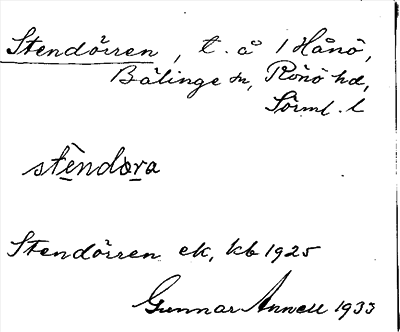 Stendörren, t. å 1 Hånö,
Bälinge sn, Rönö hd,
Sörml. l
stèndœra
Stendörren ek, kb 1925
Gunnar Annell 1933